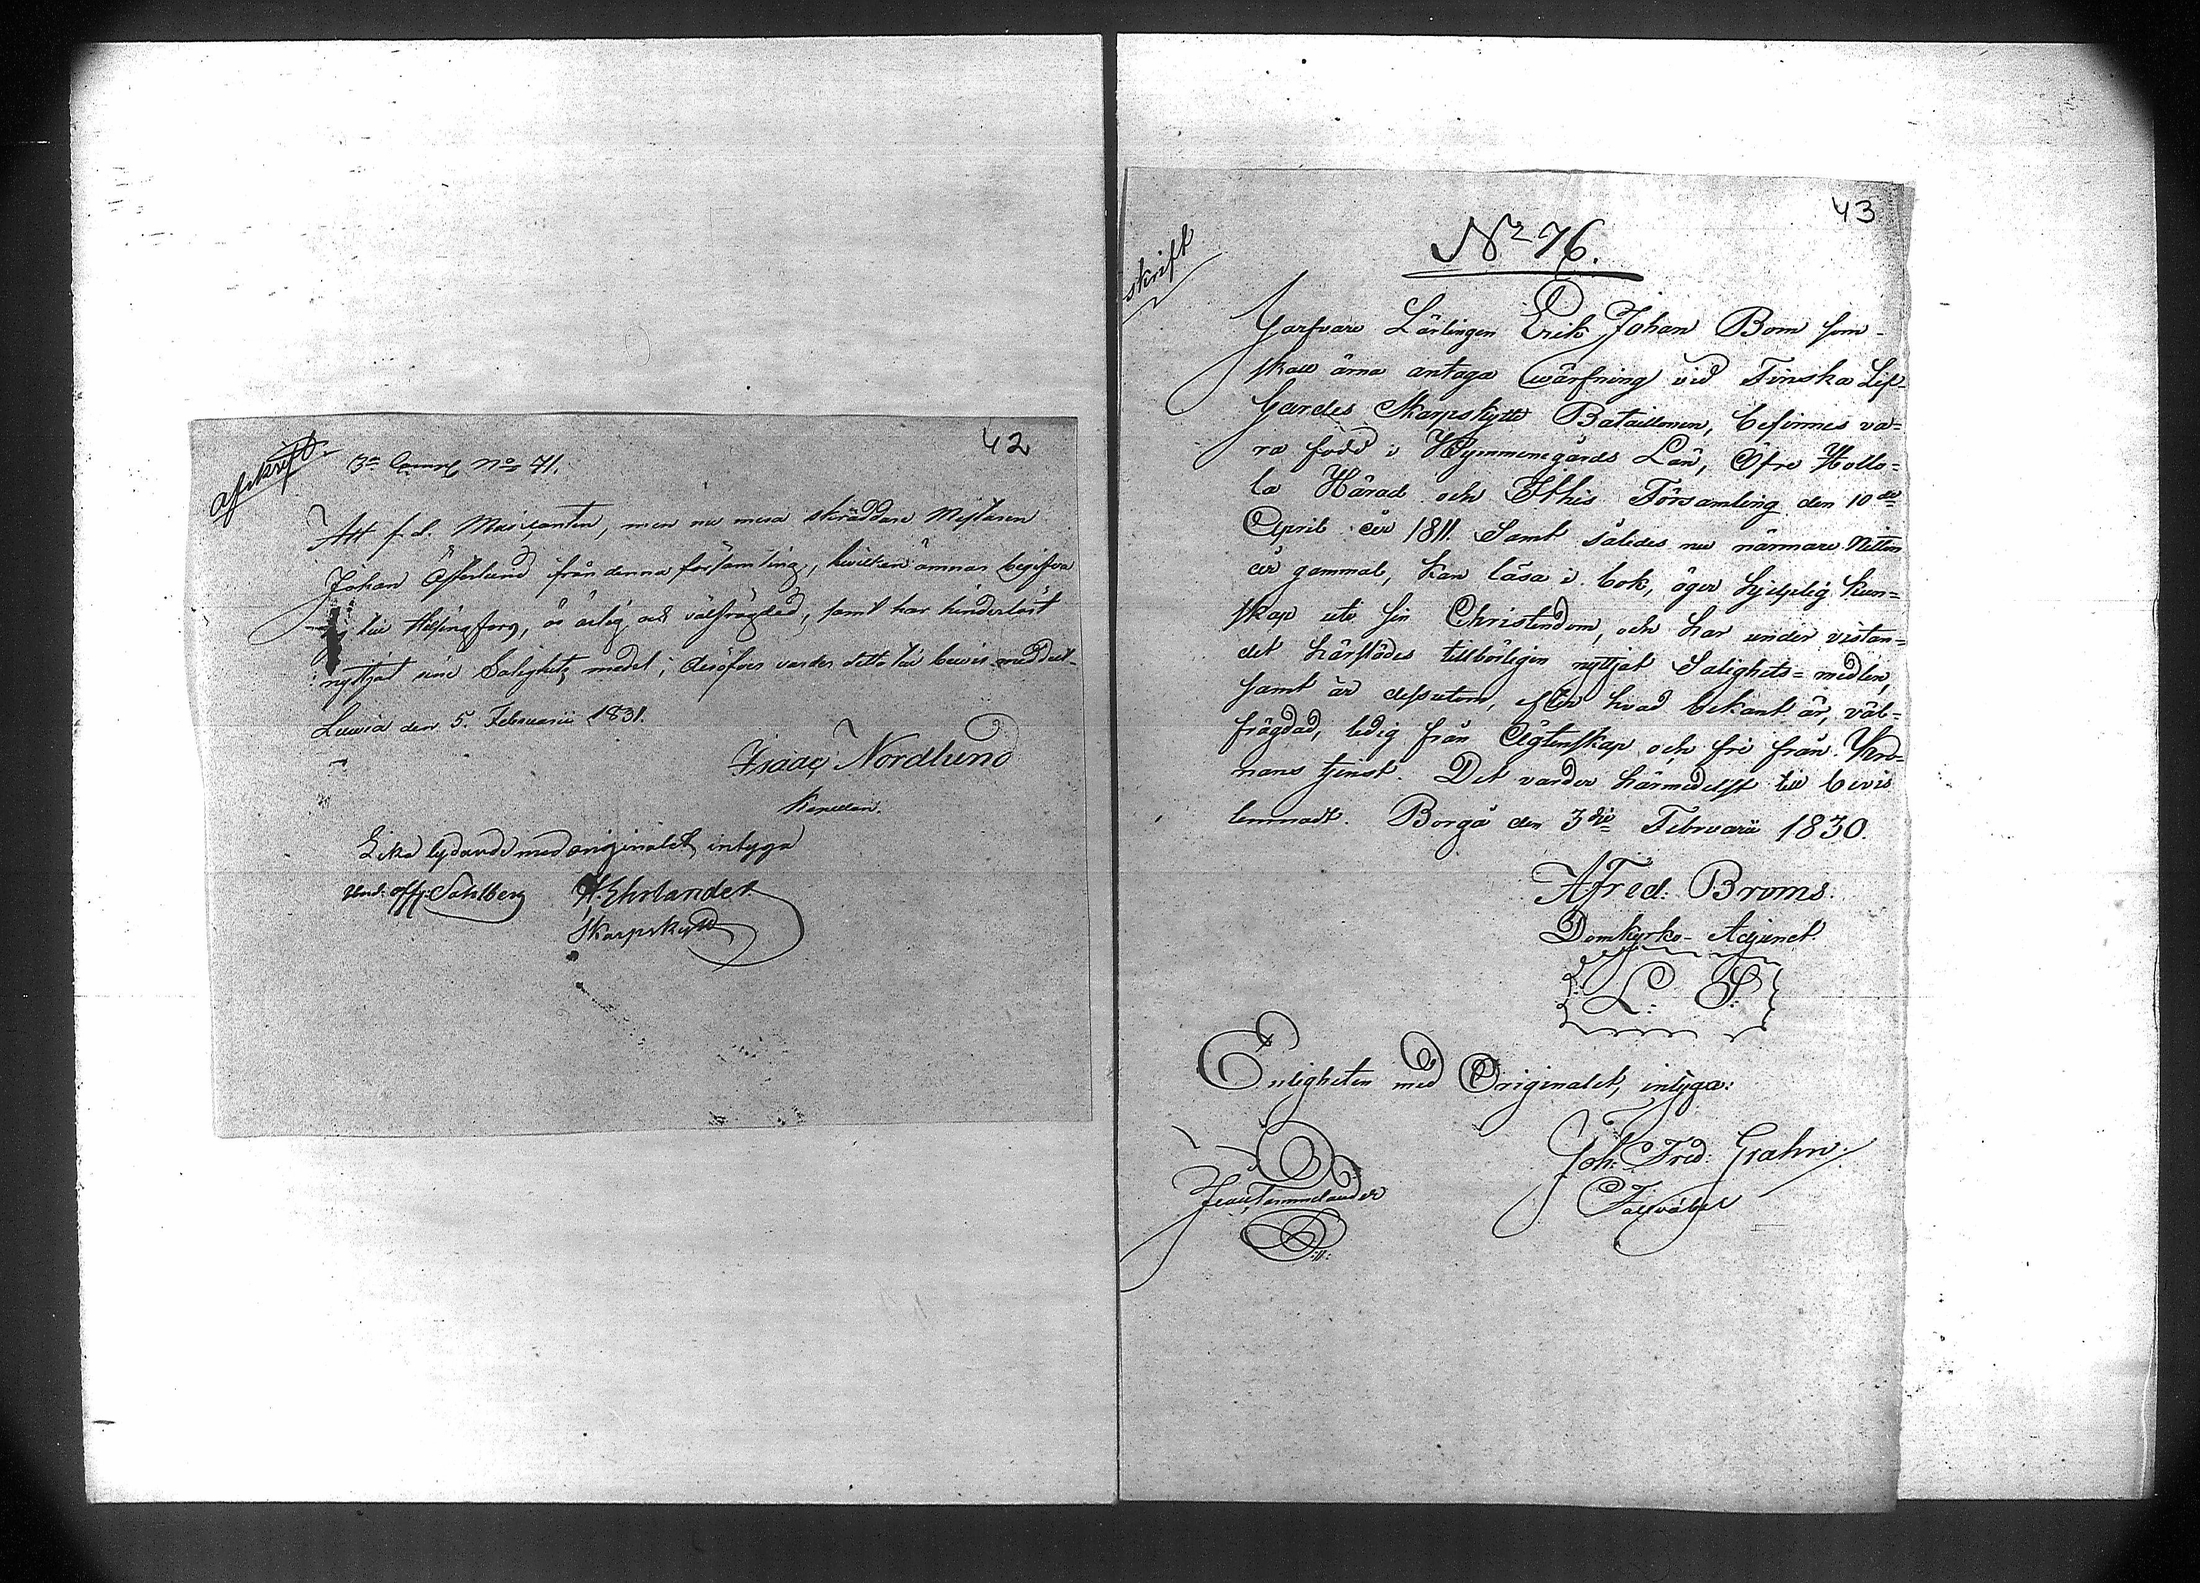 42
afskrift.
3e Comp No 71.
Att f. d. Musicanten, men nu mera skräddare Mästaren
Johan Österlund från denna församling, hvilken ämnar begifva
sig till Helsingfors, är ärlig och välfrägdad, samt har hinderlöst
nyttjat sine Salighets medel; desöfver varder detta till bevis meddelt.
Luvia den 5. Februarii 1831.
Isaac Nordlund
Kapellan.
Lika lydande med originalet, intyga
Und: off: Sahlberg H. Ehrlander
Skarpskytt
43
skrift
No 76.
Garfvare Lärlingen Erik Johan Bom som
skall ärna antaga wärfning vid Finska Lif-
Gardes Skarpskytte Bataillonen, befinnes va=
ra född i Kymmenegårds Län, Öfre Hollo=
la Härad och Itthis Församling den 10de
April år 1811. Samt således nu närmare Nitton
år gammal, kan läsa i bok, äger hjelplig kun=
skap uti sin Christendom, och har under vistan=
det härstädes tillbörligen nyttjat Salighets=medlen,
samt är dessutom, efter hvad bekant är, väl=
frägdad, ledig från Ägtenskap och fri från Kro=
nans tjenst. Det varder härmedelst till bevis
lemnadt. Borgå den 3die Februarii 1830.
A Fred: Broms.
Domkyrko-Adjunct.
L. S.
Enligheten med Originalet, intyga:
Joh: Fred: Grahn.
Fältväbel